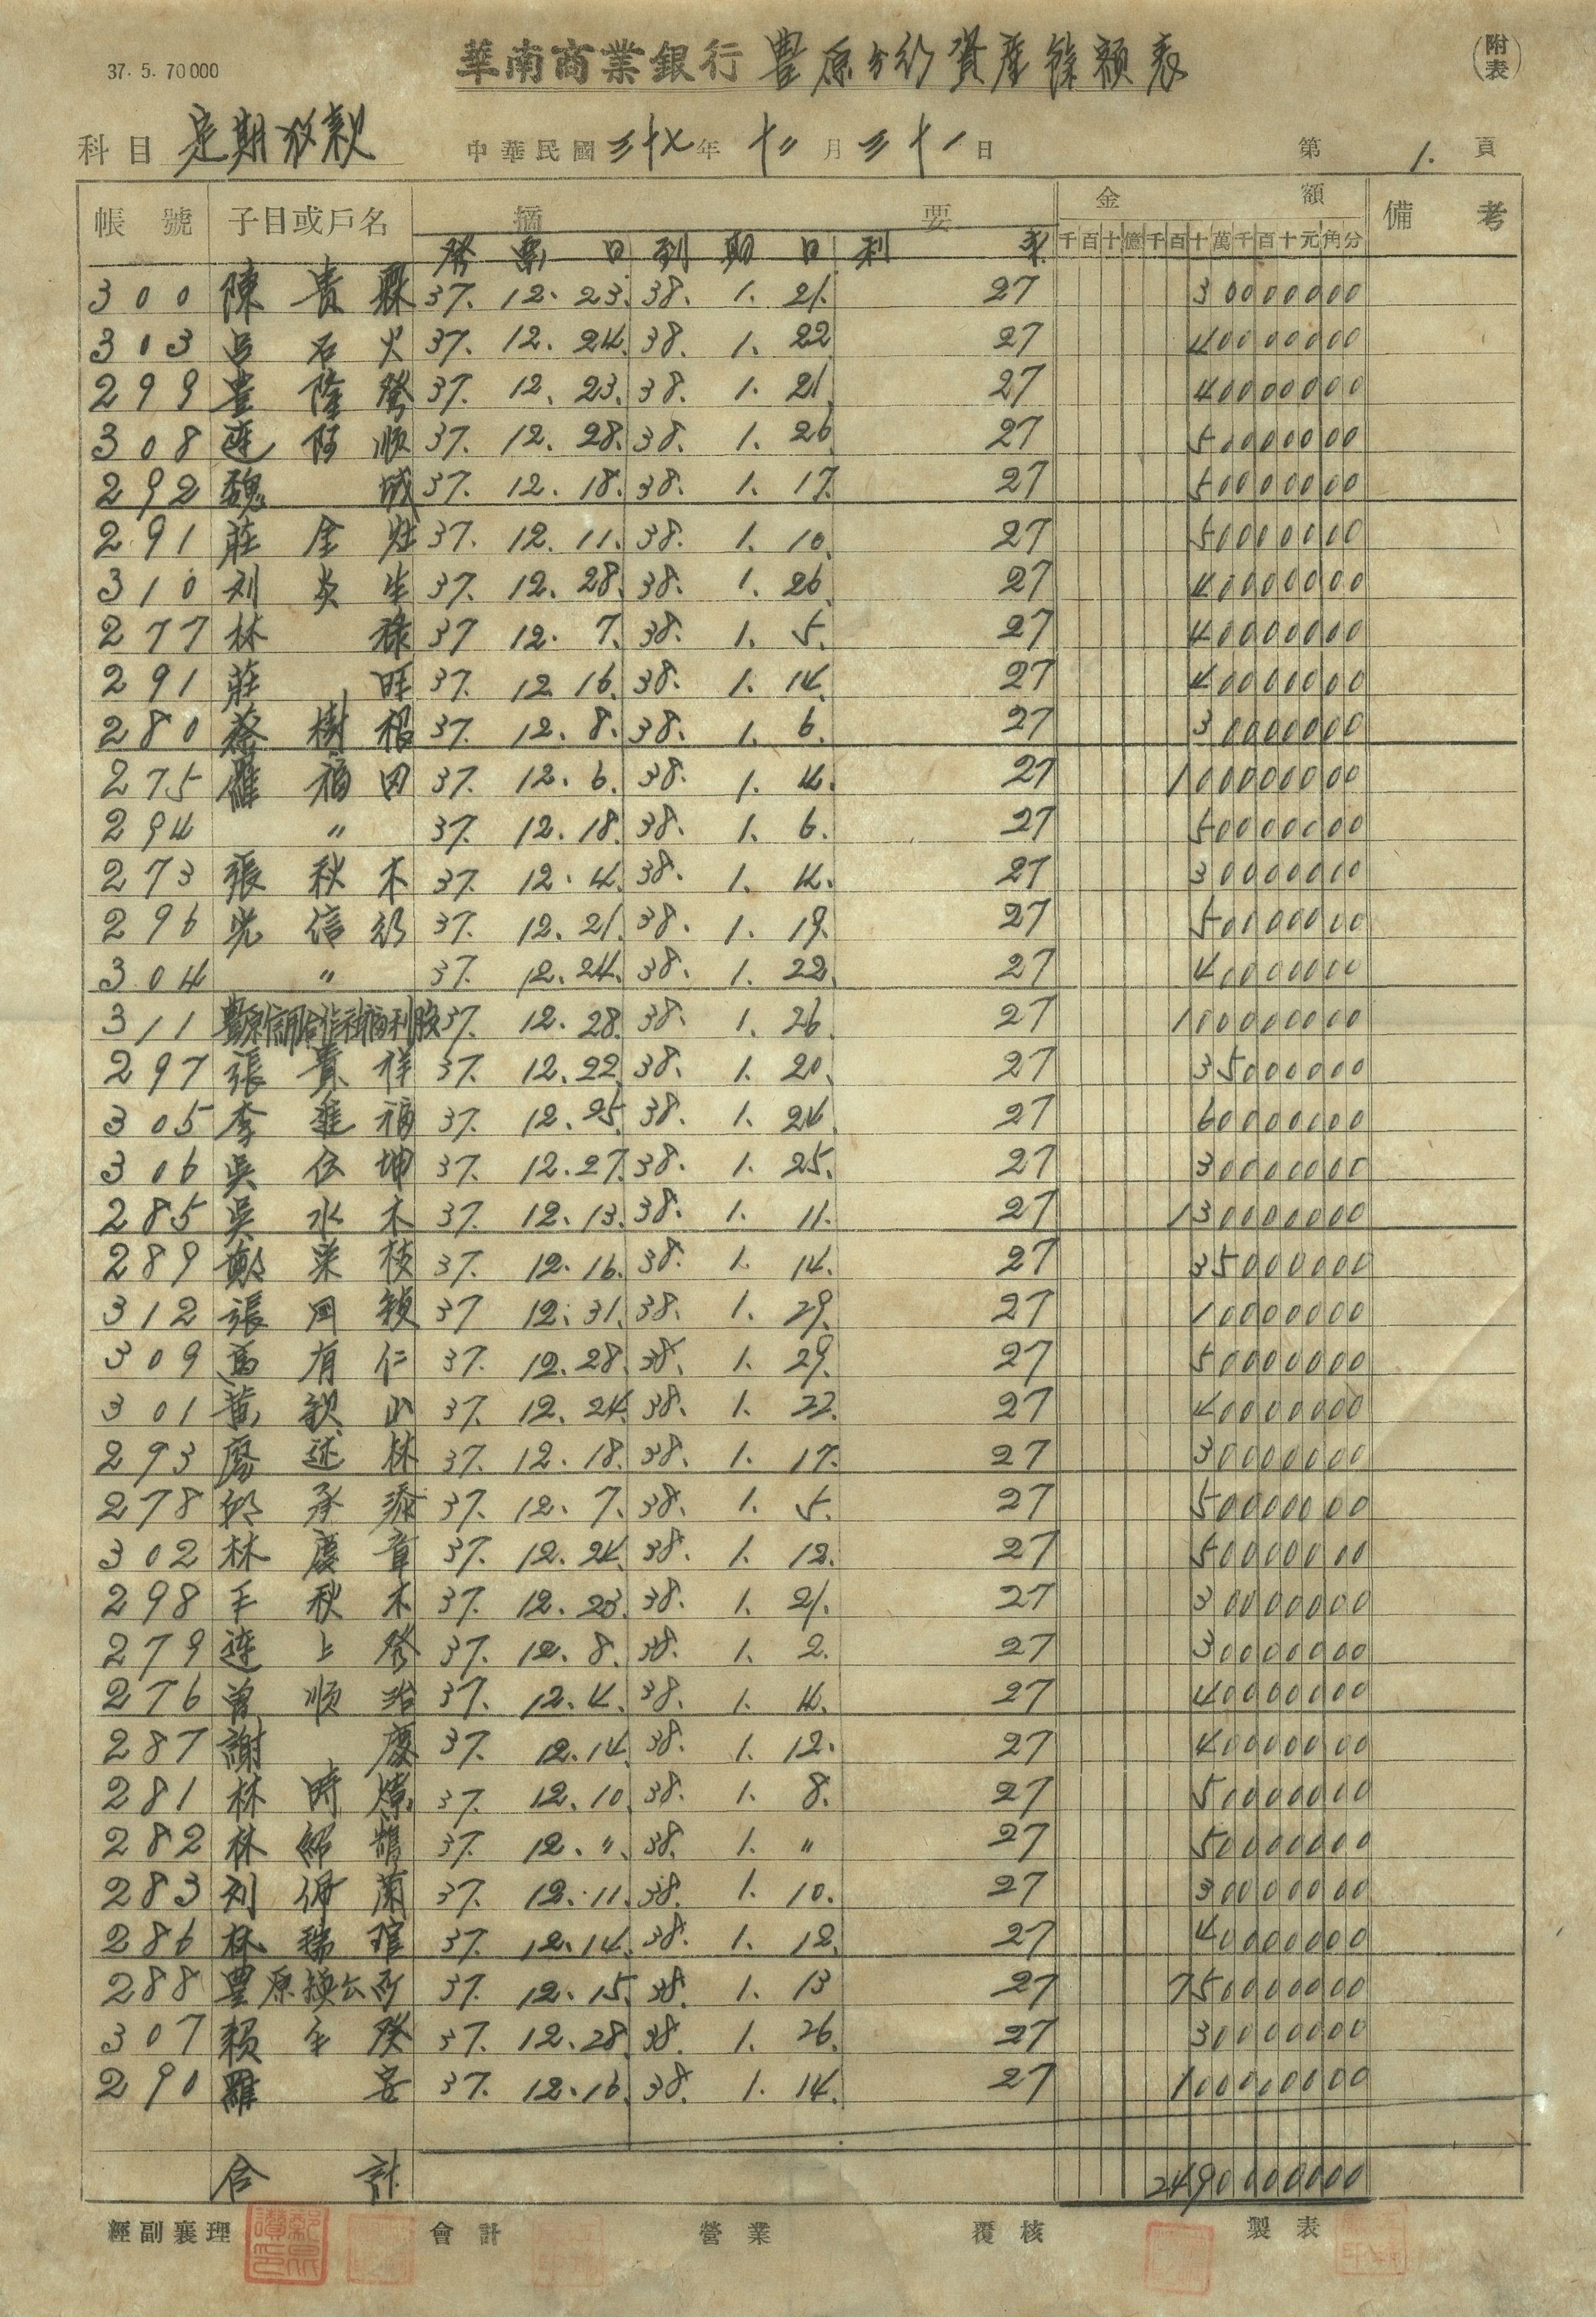 37. 5. 70000
華南商業銀行 豊原分行資產餘額表
(附表)
科目 定期放款 中華民國三十七年十二月三十一日 第1.頁
帳號 子目或戶名 摘要 金額 備考
發票日 到期日 利率 千百十億千百十萬千百十元角分
300 陳貴 37. 12. 23. 38. 1. 21. 27 30000000
303 呂石火 37. 12. 24. 38. 1. 22 27 40000000
299 豊隆發 37. 12. 23. 38. 1. 21. 27 40000000
308 連阿順 37. 12. 28. 38. 1. 26 27 50000000
292 魏城 37. 12. 18. 38. 1. 17. 27 50000000
291 莊金灶 37. 12. 11. 38. 1. 10. 27 50000000
310 刘炎生 37. 12. 28. 38. 1. 26. 27 40000000
277 林祿 37 12. 7. 38. 1. 5. 27 40000000
291 莊旺 37. 12. 16. 38. 1. 14. 27 40000000
280 蔡樹根 37. 12. 8. 38. 1. 6. 27 30000000
275 羅福田 37. 12. 6. 38. 1. 4. 27 100000000
294 〃 37. 12. 18. 38. 1. 6. 27 50000000
273 張秋木 37. 12. 4. 38. 1. 4. 27 30000000
296 光信行 37. 12. 21. 38. 1. 19. 27 50000000
304 〃 37. 12. 24. 38. 1. 22. 27 40000000
311 豊原信用合作社福利股 37. 12. 28. 38. 1. 26. 27 100000000
297 張貴祥 37. 12. 22. 38. 1. 20. 27 35000000
305 李進福 37. 12. 25. 38. 1. 24. 27 60000000
306 吳伝坤 37. 12. 27. 38. 1. 25. 27 30000000
285 吳水木 37. 12. 13. 38. 1. 11. 27 130000000
289 鄭栄枝 37. 12. 16. 38. 1. 14. 27 35000000
312 張国禎 37 12. 31. 38. 1. 29. 27 10000000
309 馬有仁 37. 12. 28. 38. 1. 29. 27 50000000
301 黃欽山 37. 12. 24. 38. 1. 22. 27 40000000
293 廖述林 37. 12. 18. 38. 1. 17. 27 30000000
278 邱承添 37. 12. 7. 38. 1. 5. 27 50000000
302 林慶章 37. 12. 24. 38. 1. 12. 27 50000000
298 王秋木 37. 12. 23. 38. 1. 21. 27 30000000
279 連上發 37. 12. 8. 38. 1. 2. 27 30000000
276 曽順治 37. 12. 4. 38. 1. 4. 27 40000000
287 謝慶 37. 12. 14. 38. 1. 12. 27 40000000
281 林時 37. 12. 10. 38. 1. 8. 27 50000000
282 林紹 37. 12. 〃. 38. 1. 〃 27 50000000
283 刘佩蘭 37. 12. 11. 38. 1. 10. 27 30000000
286 林瑞 37. 12. 14. 38. 1. 12. 27 40000000
288 豊原換公所 37. 12. 15. 38. 1. 13 27 75000000
307 賴全發 37. 12. 28. 38. 1. 26. 27 30000000
290 羅安 37. 12. 16. 38. 1. 14. 27 100000000
合計 2490000000
經副襄理 會計 營業 覆核 製表